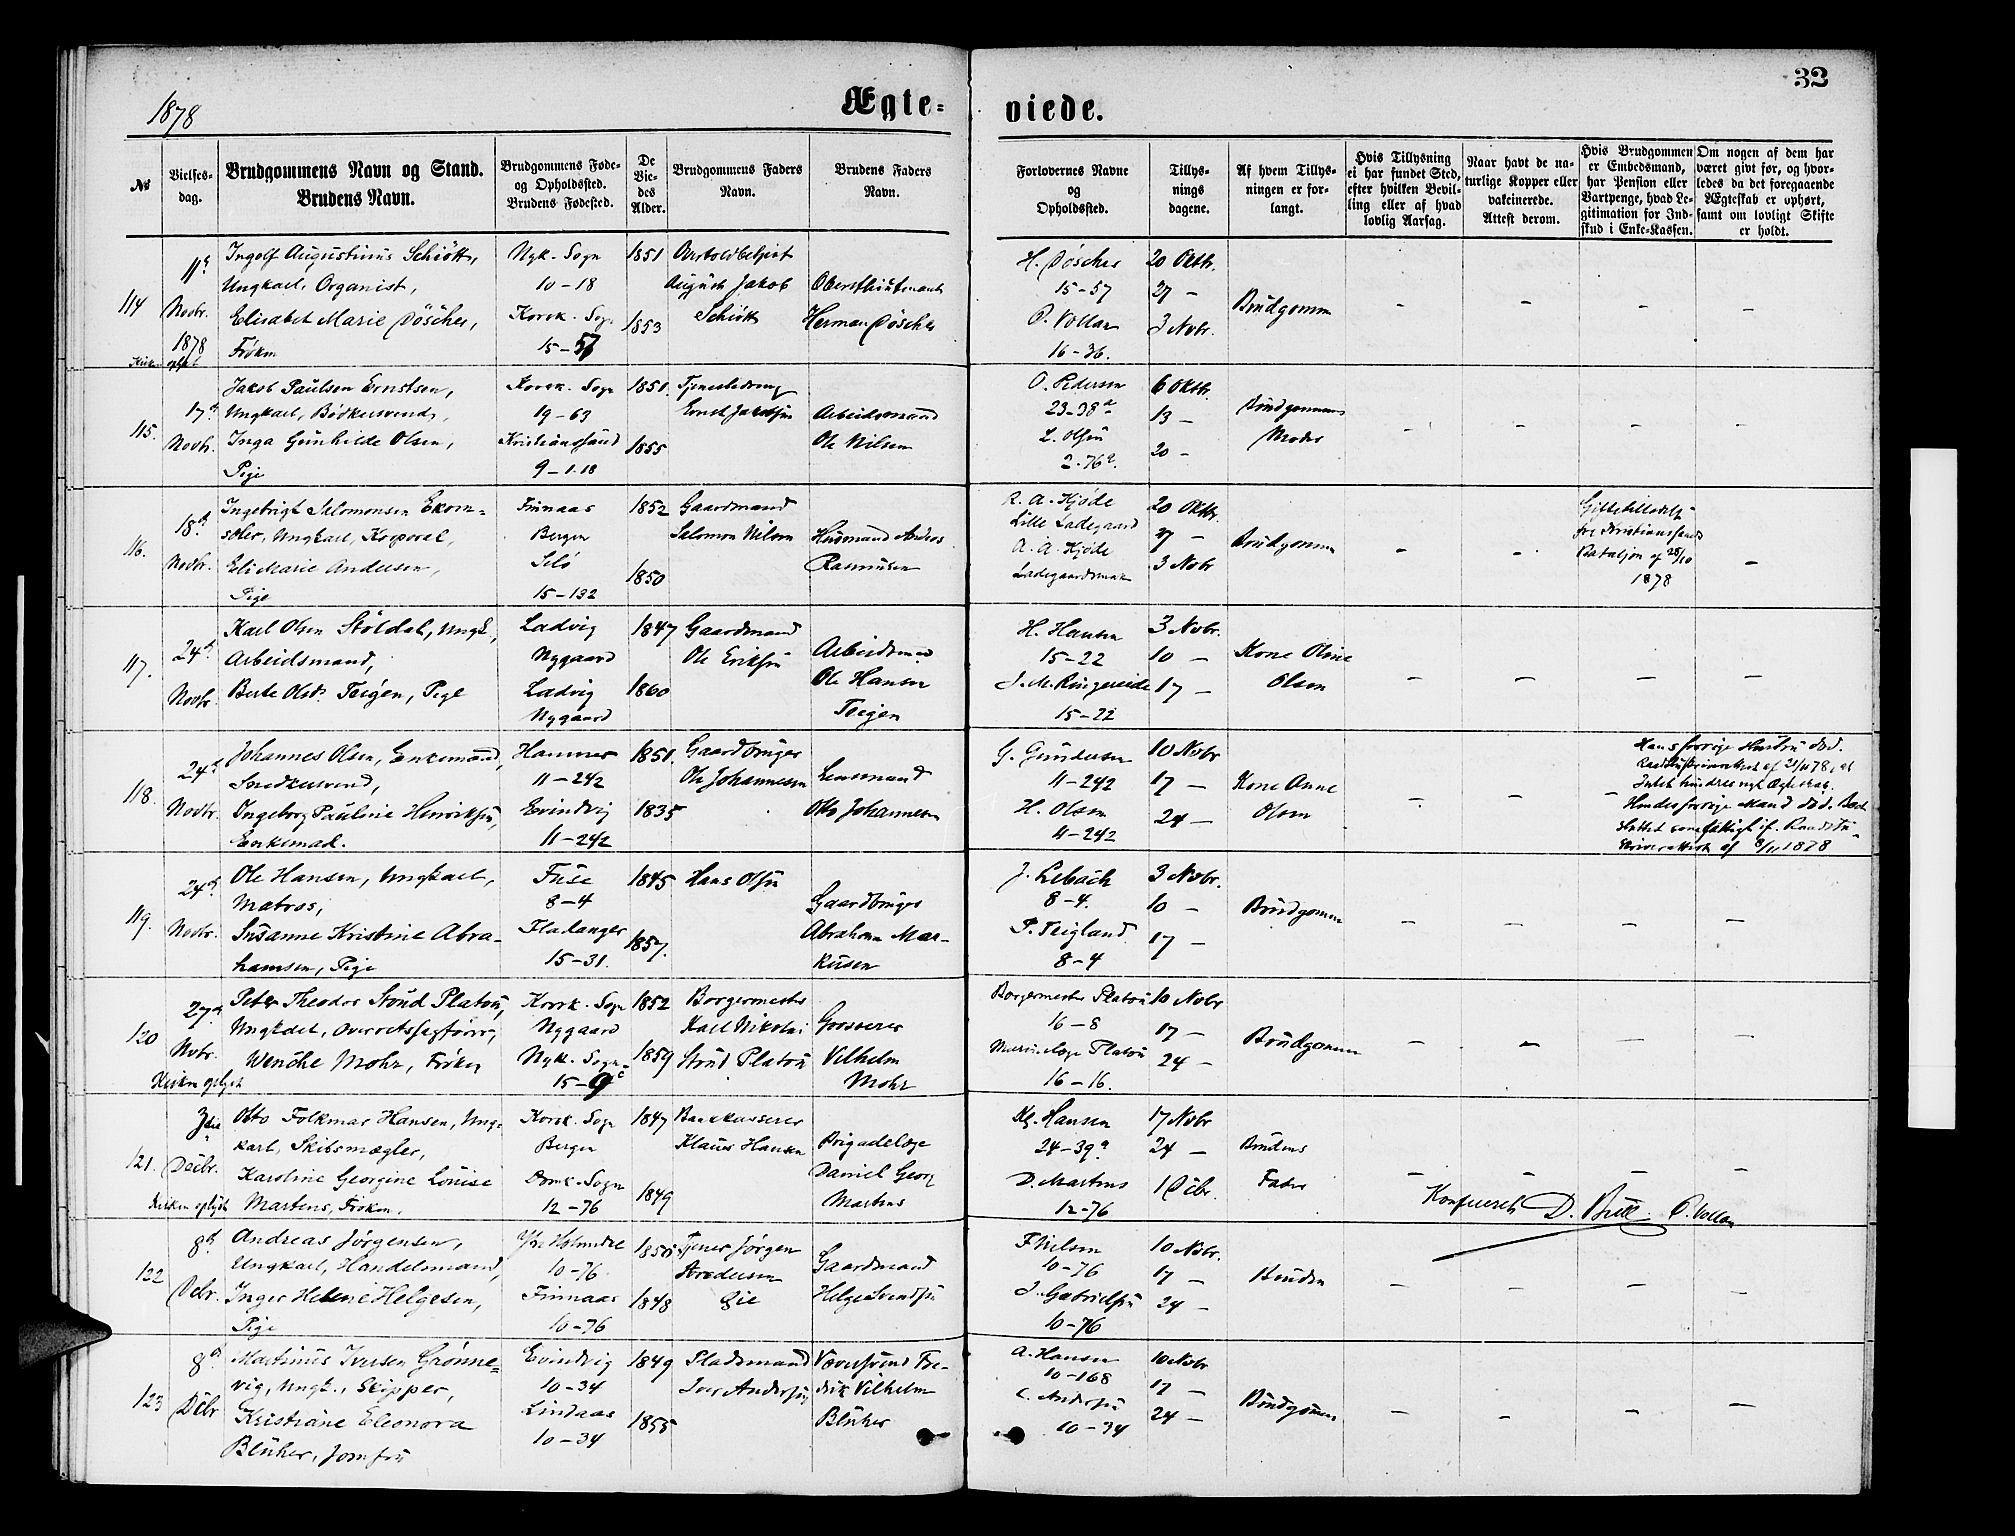 1878
Ægte-
viede.
32
№
Vielses-
dag.
Brudgommens Navn og Stand.
Brudens Navn.
Brudgommens Føde-
og Opholdssted.
Brudens Fødested.
De
Vie-
des
Alder.
Brudgommens Faders
Navn.
Brudens Faders
Navn.
Forlovernes Navne
og
Opholdssted.
Tillys-
nings
dagene.
Af hvem Tillys-
ningen er for-
langt.
Hvis Tillysning
ei har fundet Sted,
efter hvilken Bevil-
ling eller af hvad
lovlig Aarsag.
Naar havt de na-
turlige Kopper eller
vakcinerede.
Attest derom.
Hvis Brudgommen
er Embedsmand,
har Pension eller
Vartpenge, hvad Le-
gitimation for Ind-
skud i Enke-Kassen.
Om nogen af dem har
været givt før, og hvor-
ledes da det foregaaende
Ægteskab er ophørt,
samt om lovligt Skifte
er holdt.
114
Novbr.
1878
Ingolf Augustinus Schiøtt,
Ungkarl, Organist,
Elisabet Marie Döscher,
Frøken
Nyk. Sogn
10-18
Korsk. Sogn
15-57
1851
1853
August Jakob
Schiøtt
Oberstlöitenant
Herman Döscher
H. Döscher
15-57
O. Vollan
16-36.
20 Oktbr.
27 -
3 Nvbr.
Brudgommen
115.
17d
Novbr.
Jakob Paulsen Ernstsen,
Ungkarl, Bødkersvend,
Inga Gunhilde Olsen,
Pige
Korsk. Sogn
19-63
Kristianssund
9-1.18
1851.
1855
Ernst Jakobsen
Arbeidsmand
Ole Nilsen
O. Pedersen
23-38a
L. Olsen
2-76a.
6 Oktbr.
13 -
20 -
Brudgommens
Moder
116.
18d
Novbr.
Ingebrigt Salomonsen Ekorn-
sæter, Ungkarl, Korporal,
Eli Marie Andersen,
Pige
Finnaas
Bergen
Selø
15-132
1852
1850
Gaardmand
Salomon Nilsen
Husmand Anders
Rasmusen
R. A. Hjøde
Lille Ladegaard
A. A. Hjøde
20 Oktbr.
27 -
3 Nvbr
Brudgommen
Giftetilladelse
fra Kristianssands
Bataljon af 28/10
1878
117.
24d
Novbr.
Karl Olsen Støldal, Ungk.,
Arbeidsmand,
Berte Olsdr. Teigen, Pige
Ladvig
Nygaard
Ladvig
Nygaard
1847
1860
Gaardmand
Ole Eriksen
Arbeidsmand
Ole Hansen
Teigen
H. Hansen
15-22
J. M. Ringereide
15-22
3 Nvbr.
10 -
17 -
Kone Oline
Olsen
118.
24d
Novbr.
Johannes Olsen, Enkemand,
Snedkersvend,
Ingeborg Pauline Henriksen,
Enkemad.
Hammer
11-242
Evindvig
11-242
1851.
1835
Gaardbruger
Ole Johannesen
Lensmand
Otto Johannesen
G. Gundersen
11-242
H. Olsen
11-242
10 Nvbr
17 -
24 -
Kone Anne
Olsen
Hans forrige Hustru død.
Hendes forrige Mand død.
119.
24d
Novbr.
Ole Hansen, Ungkarl,
Matros,
Susanne Kristine Abra-
hamsen, Pige
Fuse
8-4
Fladanger
15-31.
1845
1857.
Hans Olsen
Gaardbruger
Abraham Mar-
kusen
J. Lebach
8-4.
P. Teigland
8-4
3 Nvbr.
10 -
17 -
Brudgommen
120
27d
Nvbr.
Kirken oplyst
Peter Theodor Stoud Platou,
Ungkarl, Overretssagfører,
Wenche Mohr, Frøken
Korsk. Sogn
Nygaard
Nyk. Sogn
15-9c
1852
1859
Borgermester
Karl Nikolai
Stoud Platou
Grosserer
Vilhelm
Mohr
Borgermester Platou
16-8
16-16.
10 Nvbr
17 -
24 -
Brudgommen
121.
3die
Decbr.
Kirken oplyst
Otto Folkmar Hansen, Ung-
karl, Skibsmægler,
Karoline Georgine Louise
Martens, Frøken.
Korsk. Sogn
Bergen
Domk. Sogn
12-76
1847
1849
Bankkasserer
Klaus Hansen
Brigadelæge
Daniel Georg
Martens
Kl. Hansen
24-39a
D. Martens
12-76
17 Nvbr
24 -
1 Dcbr.
Brudens
Fader
Konfereret D. Bull. O. Vollan
122
8d
Dcbr.
Andreas Jørgensen,
Ungkarl, Handelsmand,
Inger Helene Helgesen,
Pige
10-76
Finnaas
10-76
1848
Tjener Jørgen
Gaardmand
Helge Svendsen
F Nilsen
10-76
J. Gabrielsen
10-76
10 Nvbr.
17 -
24 -
Bruden
123
8d
Dcbr
Martinus Iversen Grønne-
vig, Ungk., Skipper,
Kristiane Eleonora
Blüher, Jomfru
Evindvig
10-34
Lindaas
10-34
1849
1855
Pladsmand
Iver Andersen
Væversvend Fre-
drik Vilhelm
Blüher
A. Hansen
10-168
C. Andersen
10-34
10 Nvbr
17 -
24 -
Brudgommen